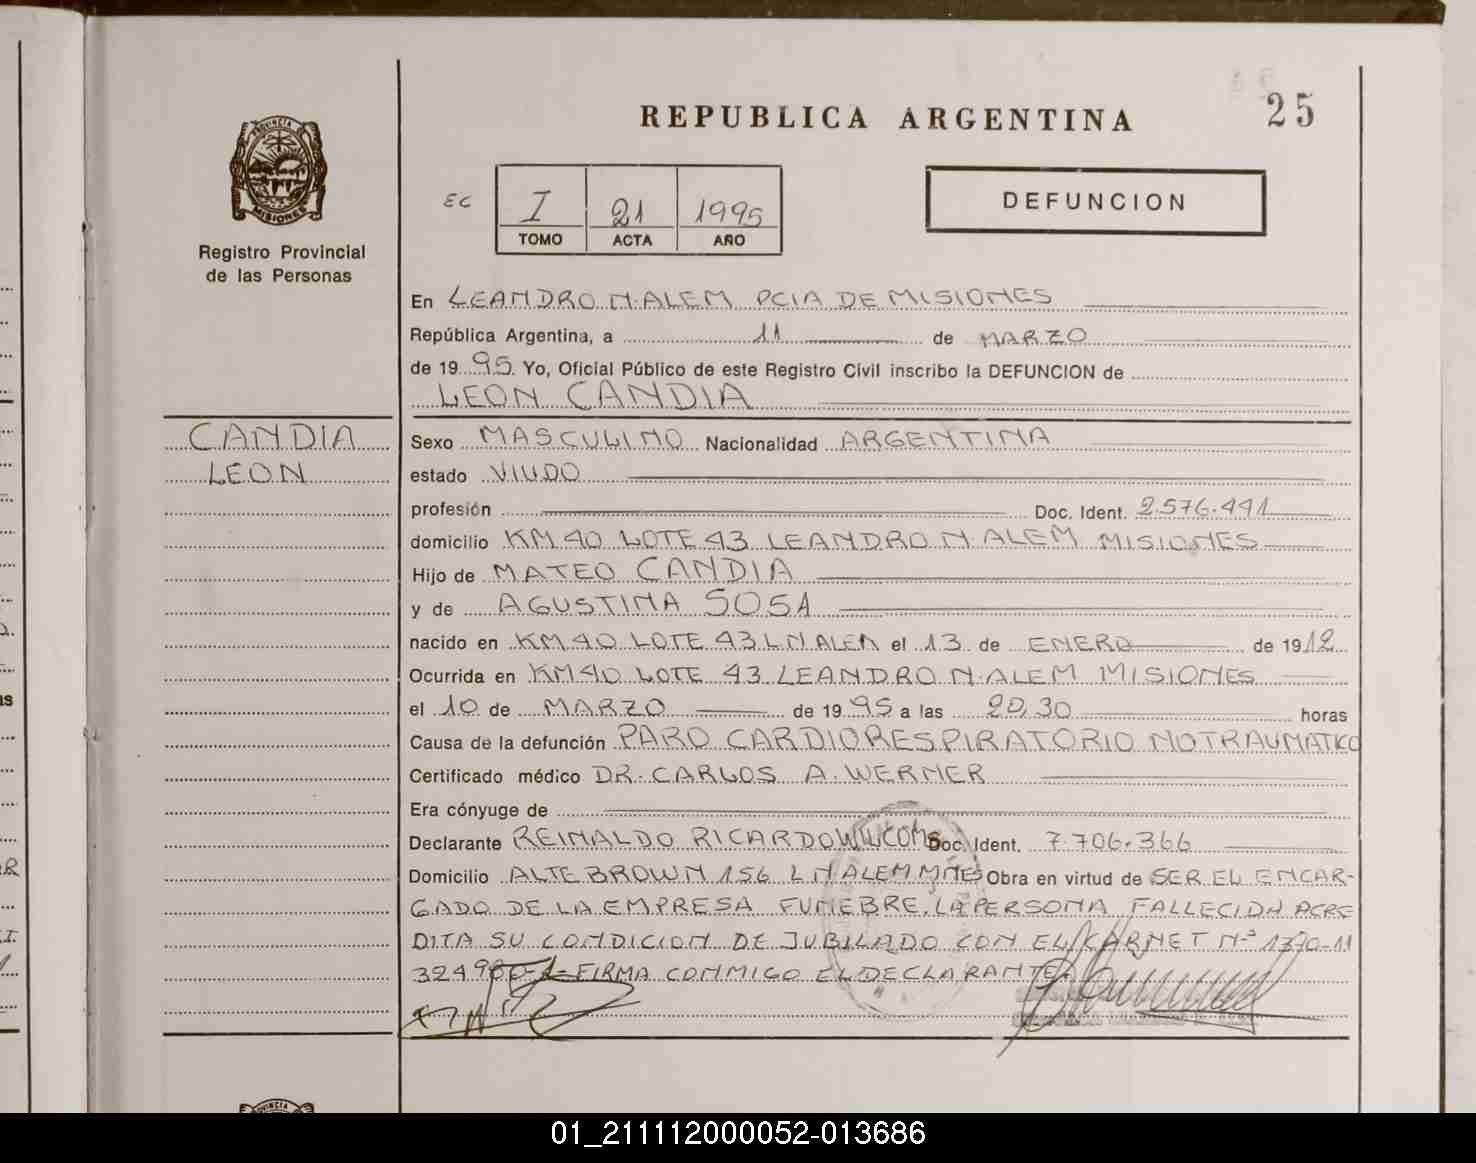 REPUBLICA ARGENTINA
25
PROVINCIA
MISIONES
Registro Provincial
de las Personas
EC
I 21 1995
TOMO ACTA AÑO
DEFUNCION
En LEANDRO N. ALEM PCIA DE MISIONES
República Argentina, a 11 de MARZO
de 1995. Yo, Oficial Público de este Registro Civil inscribo la DEFUNCION de
LEON CANDIA
CANDIA
LEON
Sexo MASCULINO Nacionalidad ARGENTINA
estado VIUDO
profesión Doc. Ident. 2.576.441
domicilio KM 40 LOTE 43 LEANDRO N. ALEM MISIONES
Hijo de MATEO CANDIA
y de AGUSTINA SOSA
nacido en KM 40 LOTE 43 L N ALEM el 13 de ENERO de 1912
Ocurrida en KM 40 LOTE 43 LEANDRO N. ALEM MISIONES
el 10 de MARZO de 1995 a las 20,30 horas
Causa de la defunción PARO CARDIORESPIRATORIO NOTRAUMATICO
Certificado médico DR. CARLOS A. WERNER
Era cónyuge de
Declarante REINALDO RICARDO Doc. Ident. 7.706.366
Domicilio ALTE BROWN 156 L N ALEM MNES Obra en virtud de SER EL ENCAR-
GADO DE LA EMPRESA FUNEBRE. LA PERSONA FALLECIDA ACRE
DITA SU CONDICION DE JUBILADO CON EL CARNET Nº 1370-11
FIRMA CONMIGO EL DECLARANTE.
01_211112000052-013686